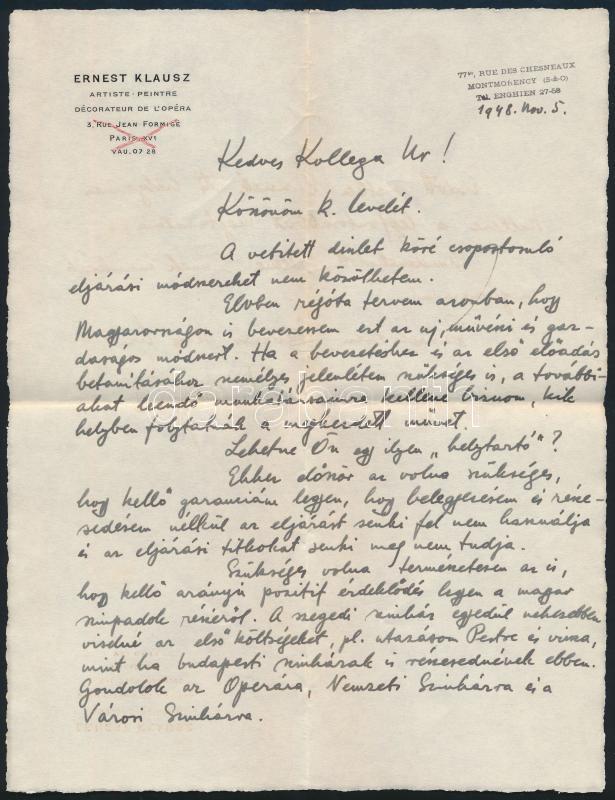 ERNEST KLAUSZ
ARTISTE-PEINTRE
DÉCORATEUR DE L'OPÉRA
3, RUE JEAN FORMIGÉ
PARIS XVI
VAU. 07 28
77bis, RUE DES CHESNEAUX
MONTMORENCY (S-&-O)
Tél. ENGHIEN 27-58
1948. Nov. 5.
Kedves Kollega Ur!
Köszönöm k. levelét.
A vetitett diszlet köré csoportosuló
eljárási módszereket nem közölhetem.
Elvben régóta tervem azonban, hogy
Magyarországon is bevezessem ezt az uj, művészi és gaz-
daságos módszert. Ha a bevezetéshez és az első előadás
betanitásához személyes jelenlétem szükséges is, a további-
akat leendő munkatársaimra kellene biznom, kik
helyben folytatnák a megkezdett művet.
Lehetne Ön egy ilyen "helytartó"?
Ehhez először az volna szükséges,
hogy kellő garanciám legyen, hogy belegyezésem és része-
sedésem nélkül az eljárást senki fel nem használja
és az eljárási titkokat senki meg nem tudja.
Szükséges volna természetesen az is,
hogy kellő arányú pozitif érdeklődés legyen a magyar
szinpadok részéről. A szegedi szinház egyedül nehezebben
viselné az első költségeket, pl. utazásom Pestre és vissza,
mint ha budapesti szinházak is részesednének ebben.
Gondolok az Operára, Nemzeti Szinházra és a
Városi Szinházra.
darabanth